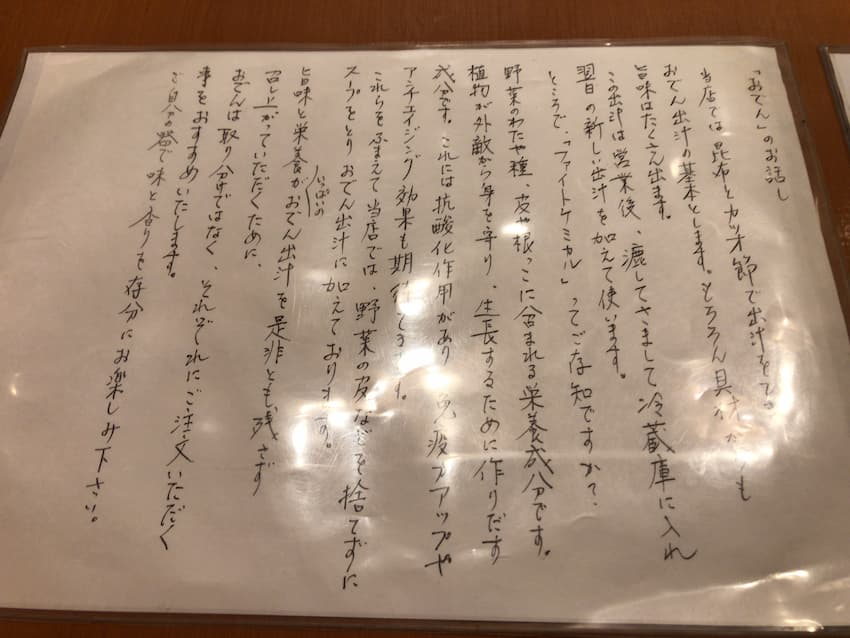 「おでん」のお話し
当店では昆布とカツオ節で出汁をとる
おでん出汁の基本とします。もちろん具材からも
旨味はたくさん出ます。
この出汁は営業後、漉してさまして冷蔵庫に入れ
翌日の新しい出汁を加えて使います。
ところで、「ファイトケミカル」ってご存知ですか?
野菜のわたや種、皮や根っこに含まれる栄養成分です。
植物が外敵から身を守り、生長するために作りだす
成分です。これには抗酸化作用があり 免疫力アップや
アンチエイジング効果も期待できます。
これらをふまえて当店では、野菜の皮などを捨てずに
スープをとりおでん出汁に加えております。
旨味と栄養がいっぱいのおでん出汁を是非とも残さず
召し上がっていただくために、
おでんは取り分けではなく、それぞれにご注文いただく
事をおすすめいたします。
ご自分の器で味と香りを存分にお楽しみ下さい。